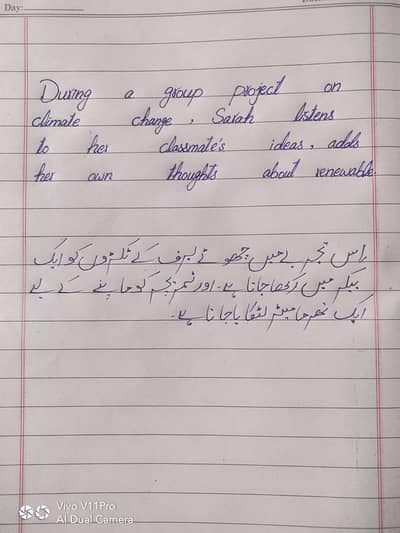 Day:
During a group project on
climate change, Sarah listens
to her classmate's ideas, adds
her own thoughts about renewable
اس تجربے میں چھوٹے برف کے ٹکڑوں کو ایک
بیکر میں رکھا جاتا ہے۔ اور ٹمپریچر کو ماپنے کے لیے
ایک تھرمامیٹر لٹکایا جاتا ہے۔
Vivo V11Pro
AI Dual Camera